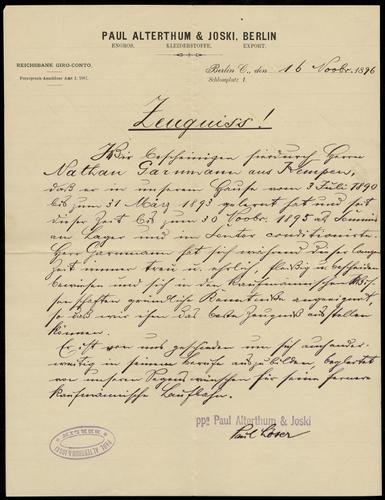 PAUL ALTERTHUM & JOSKI, BERLIN
ENGROS. KLEIDERSTOFFE. EXPORT.
REICHSBANK GIRO-CONTO.
Fernsprech-Anschluss Amt 1.
Berlin C., den 16 Novbr. 1896
Schlossplatz 1.
Zeugniss!
Wir bescheinigen hierdurch Herrn
Nathan Garnmann aus Kempen,
daß er in unserem Hause vom 3 Juli 1890
bis zum 31 März 1893 gelernt hat und seit
dieser Zeit bis zum 30 Novbr. 1895 als Commis
am Lager und im Contor conditionirte.
Herr Garnmann hat sich während dieser langen
Zeit immer treu u. ehrlich, fleißig u bescheiden
bewiesen und sich in der kaufmännischen Wis-
senschaften gründliche Kenntnisse angeeignet,
so daß wir ihm das beste Zeugniß ausstellen
können.
Er ist von uns geschieden um sich ander-
weitig in seinem Berufe auszubilden, begleitet
von unseren Segenswünschen für seine fernere
kaufmännische Laufbahn.
ppa Paul Alterthum & Joski
Paul Löser
PAUL ALTERTHUM & JOSKI
BERLIN